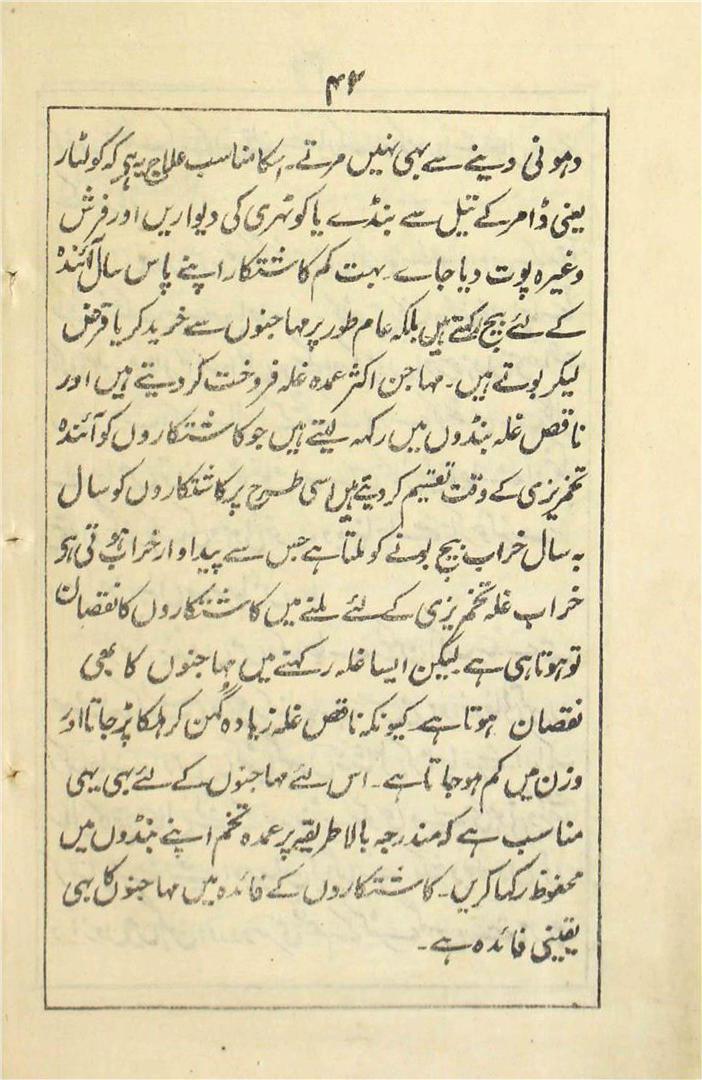 ۴۲
دہونی دینے سے بھی نہیں مرتے۔ اسکا مناسب علاج یہ ہے کہ کولٹار
یعنی ڈامر کے تیل سے بنڈے یا کوٹہری کی دیواریں اور فرش
وغیرہ پوت دیا جاے۔ بہت کم کاشتکار اپنے پاس سال آئندہ
کے لئے بیج رکہتے ہیں بلکہ عام طور پر مہاجنوں سے خرید کر یا قرض
لیکر بوتے ہیں۔ مہاجن اکثر عمدہ غلہ فروخت کر دیتے ہیں اور
ناقص غلہ بنڈوں میں رکہہ لیتے ہیں جو کاشتکاروں کو آئندہ
تخمریزی کے وقت تقسیم کر دیتے ہیں اسی طرح پر کاشتکاروں کو سال
بہ سال خراب بیج بونے کو ملتا ہے جس سے پیداوار خراب ہوتی ہے
خراب غلہ تخمریزی کے لئے ملنے میں کاشتکاروں کا نقصان
تو ہوتا ہی ہے لیکن ایسا غلہ رکہنے میں مہاجنوں کا بھی
نقصان ہوتا ہے کیونکہ ناقص غلہ زیادہ گہن کر ہلکا پڑ جاتا اور
وزن میں کم ہو جاتا ہے۔ اس لئے مہاجنوں کے لئے بہی یہی
مناسب ہے کہ مندرجہ بالا طریقہ پر عمدہ تخم اپنے بنڈوں میں
محفوظ رکہا کریں۔ کاشتکاروں کے فائدہ میں مہاجنوں کا بہی
یقینی فائدہ ہے۔